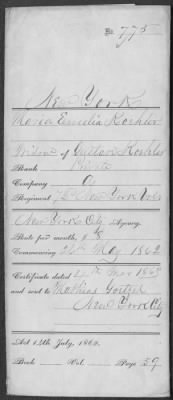 No. 775
New York
Maria Emilia Koehler
Widow of Gustav Koehler
Rank Private
Company G
Regiment 7th New York Vols
New York City Agency.
Rate per month, $ 8
Commencing May 1862
Certificate dated 24th Nov 1863
and sent to Mathias Goetzel
New York City
Act 14th July, 1862.
Book Vol. Page 59